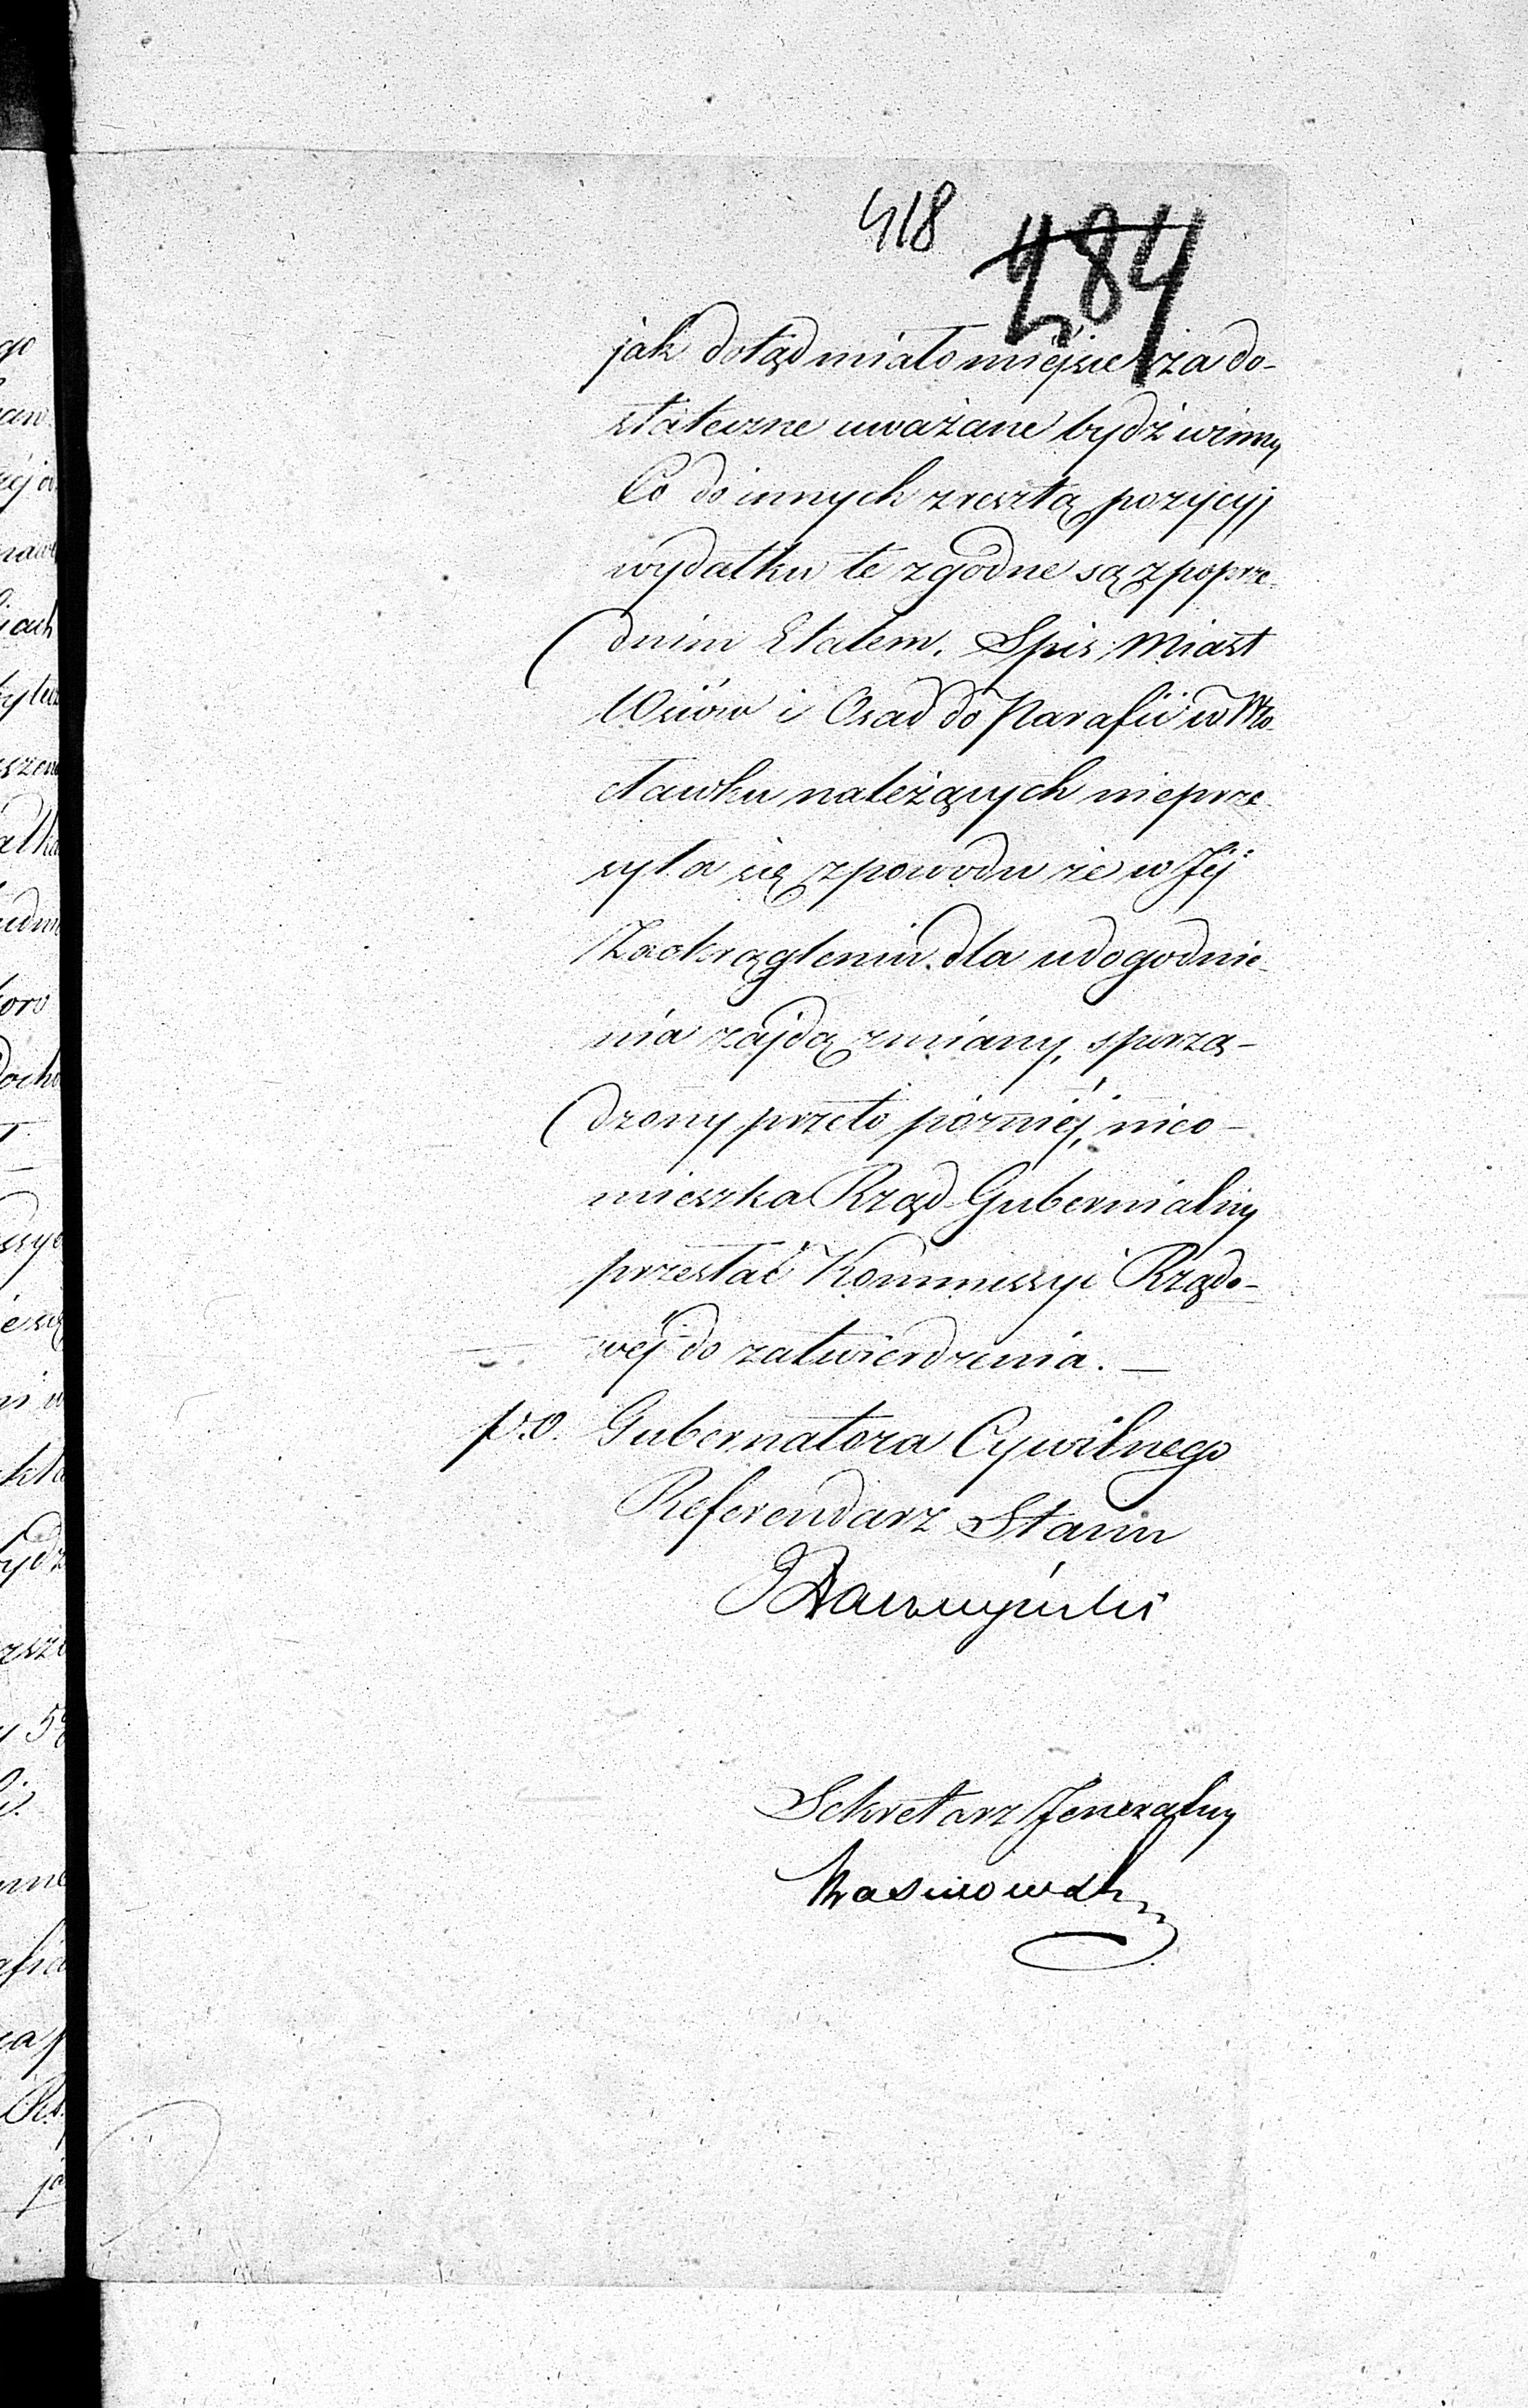 418 284
jak dotąd miało miéjsce za do-
stateczne uważane bydź winny
Co do innych zresztą pozycyj
wydatku te zgodne są z poprze-
dnim Etatem. Spis Miast
Wsiów i Osad do Parafii w Wło-
cławku należących nieprze-
syła się z powodu że w Jéj
Zaokrągleniu dla udogodnie-
nia zajdą zmiany, sporzą-
dzony przeto póżniéj, nieo-
mieszka Rząd Gubernialny
przesłać Kommissyi Rządo-
wéj do zatwierdzenia. —
p.o. Gubernatora Cywilnego
Referendarz Stanu
Sekretarz Jeneralny